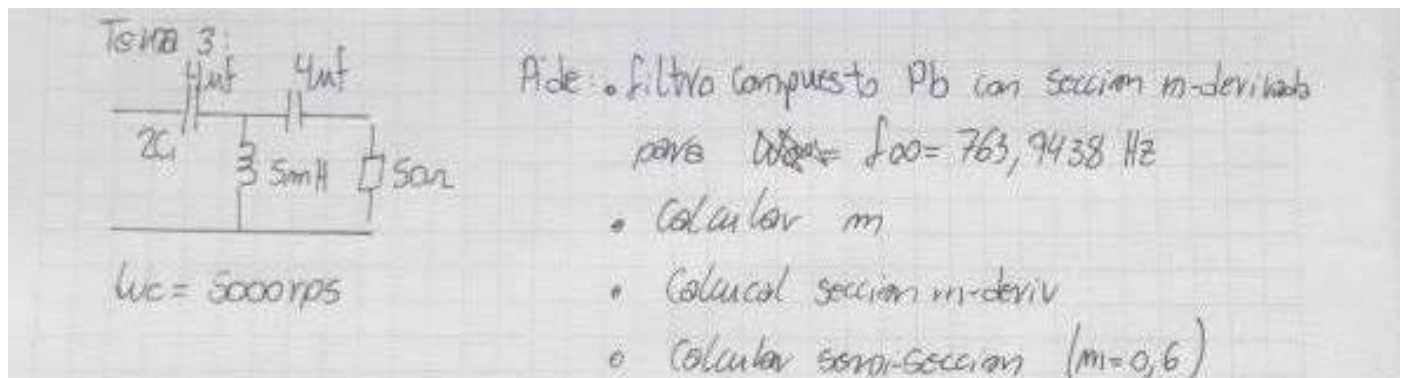 Tema 3:
4μf 4μf
2C1
5mH 50Ω
Wc = 5000 rps
Pide: • filtro compuesto Pb con seccion m-derivada
para f∞ = 763,9438 Hz
• Calcular m
• Calucal seccion m-deriv
• Calcular semi-seccion (m=0,6)